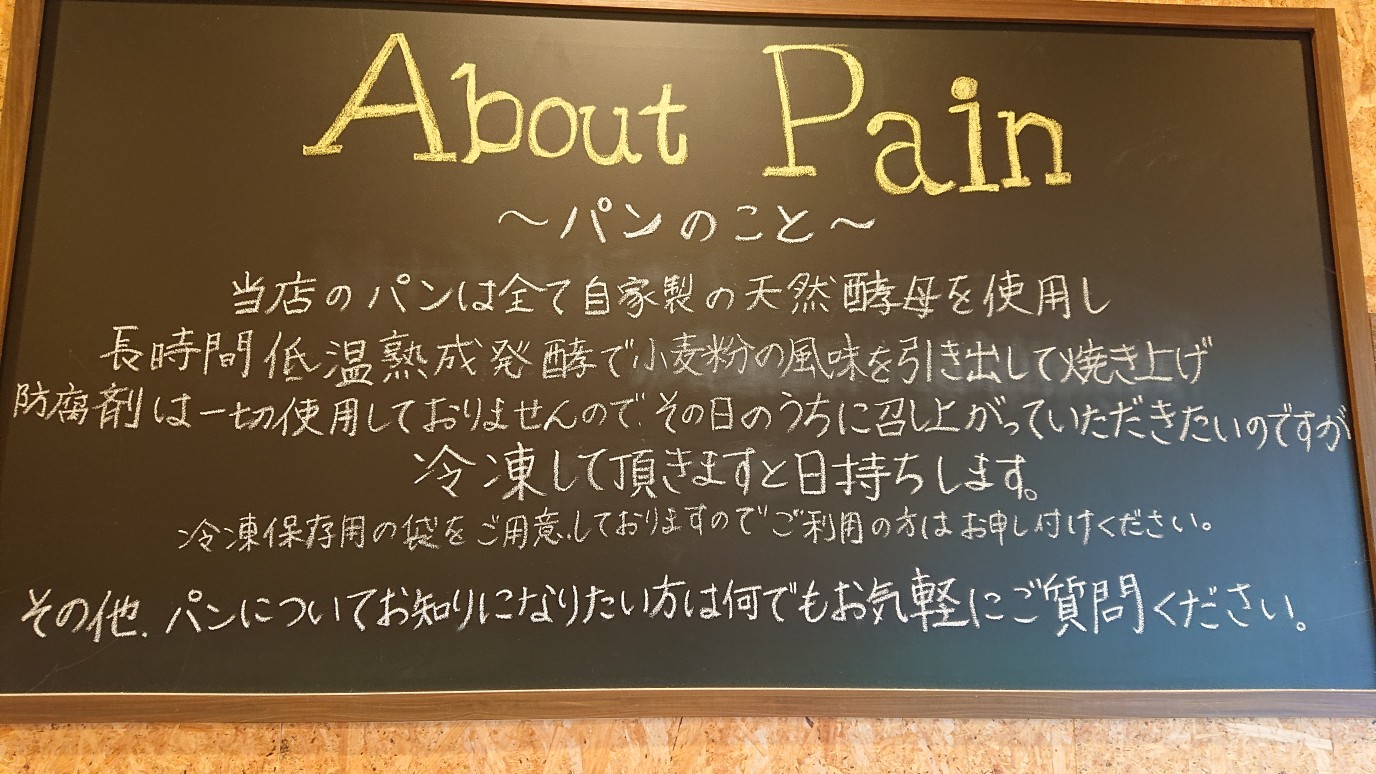 About Pain
～パンのこと～
当店のパンは全て自家製の天然酵母を使用し
長時間低温熟成発酵で小麦粉の風味を引き出して焼き上げ
防腐剤は一切使用しておりませんので、その日のうちに召し上がっていただきたいのですが
冷凍して頂きますと日持ちします。
冷凍保存用の袋をご用意しておりますのでご利用の方はお申し付けください。
その他、パンについてお知りになりたい方は何でもお気軽にご質問ください。